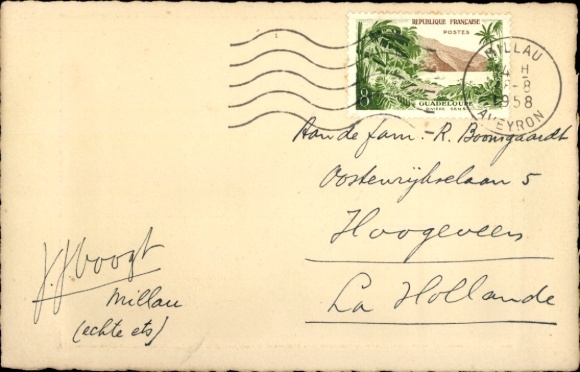 RÉPUBLIQUE FRANÇAISE
POSTES
8F
GUADELOUPE
RIVIÈRE SENS
MILLAU
4 H
8-8
1958
AVEYRON
Aan de fam. - R. Boomgaardt
Oostenrijkselaan 5
Hoogeveen
La Hollande
Millau
(echte ets)